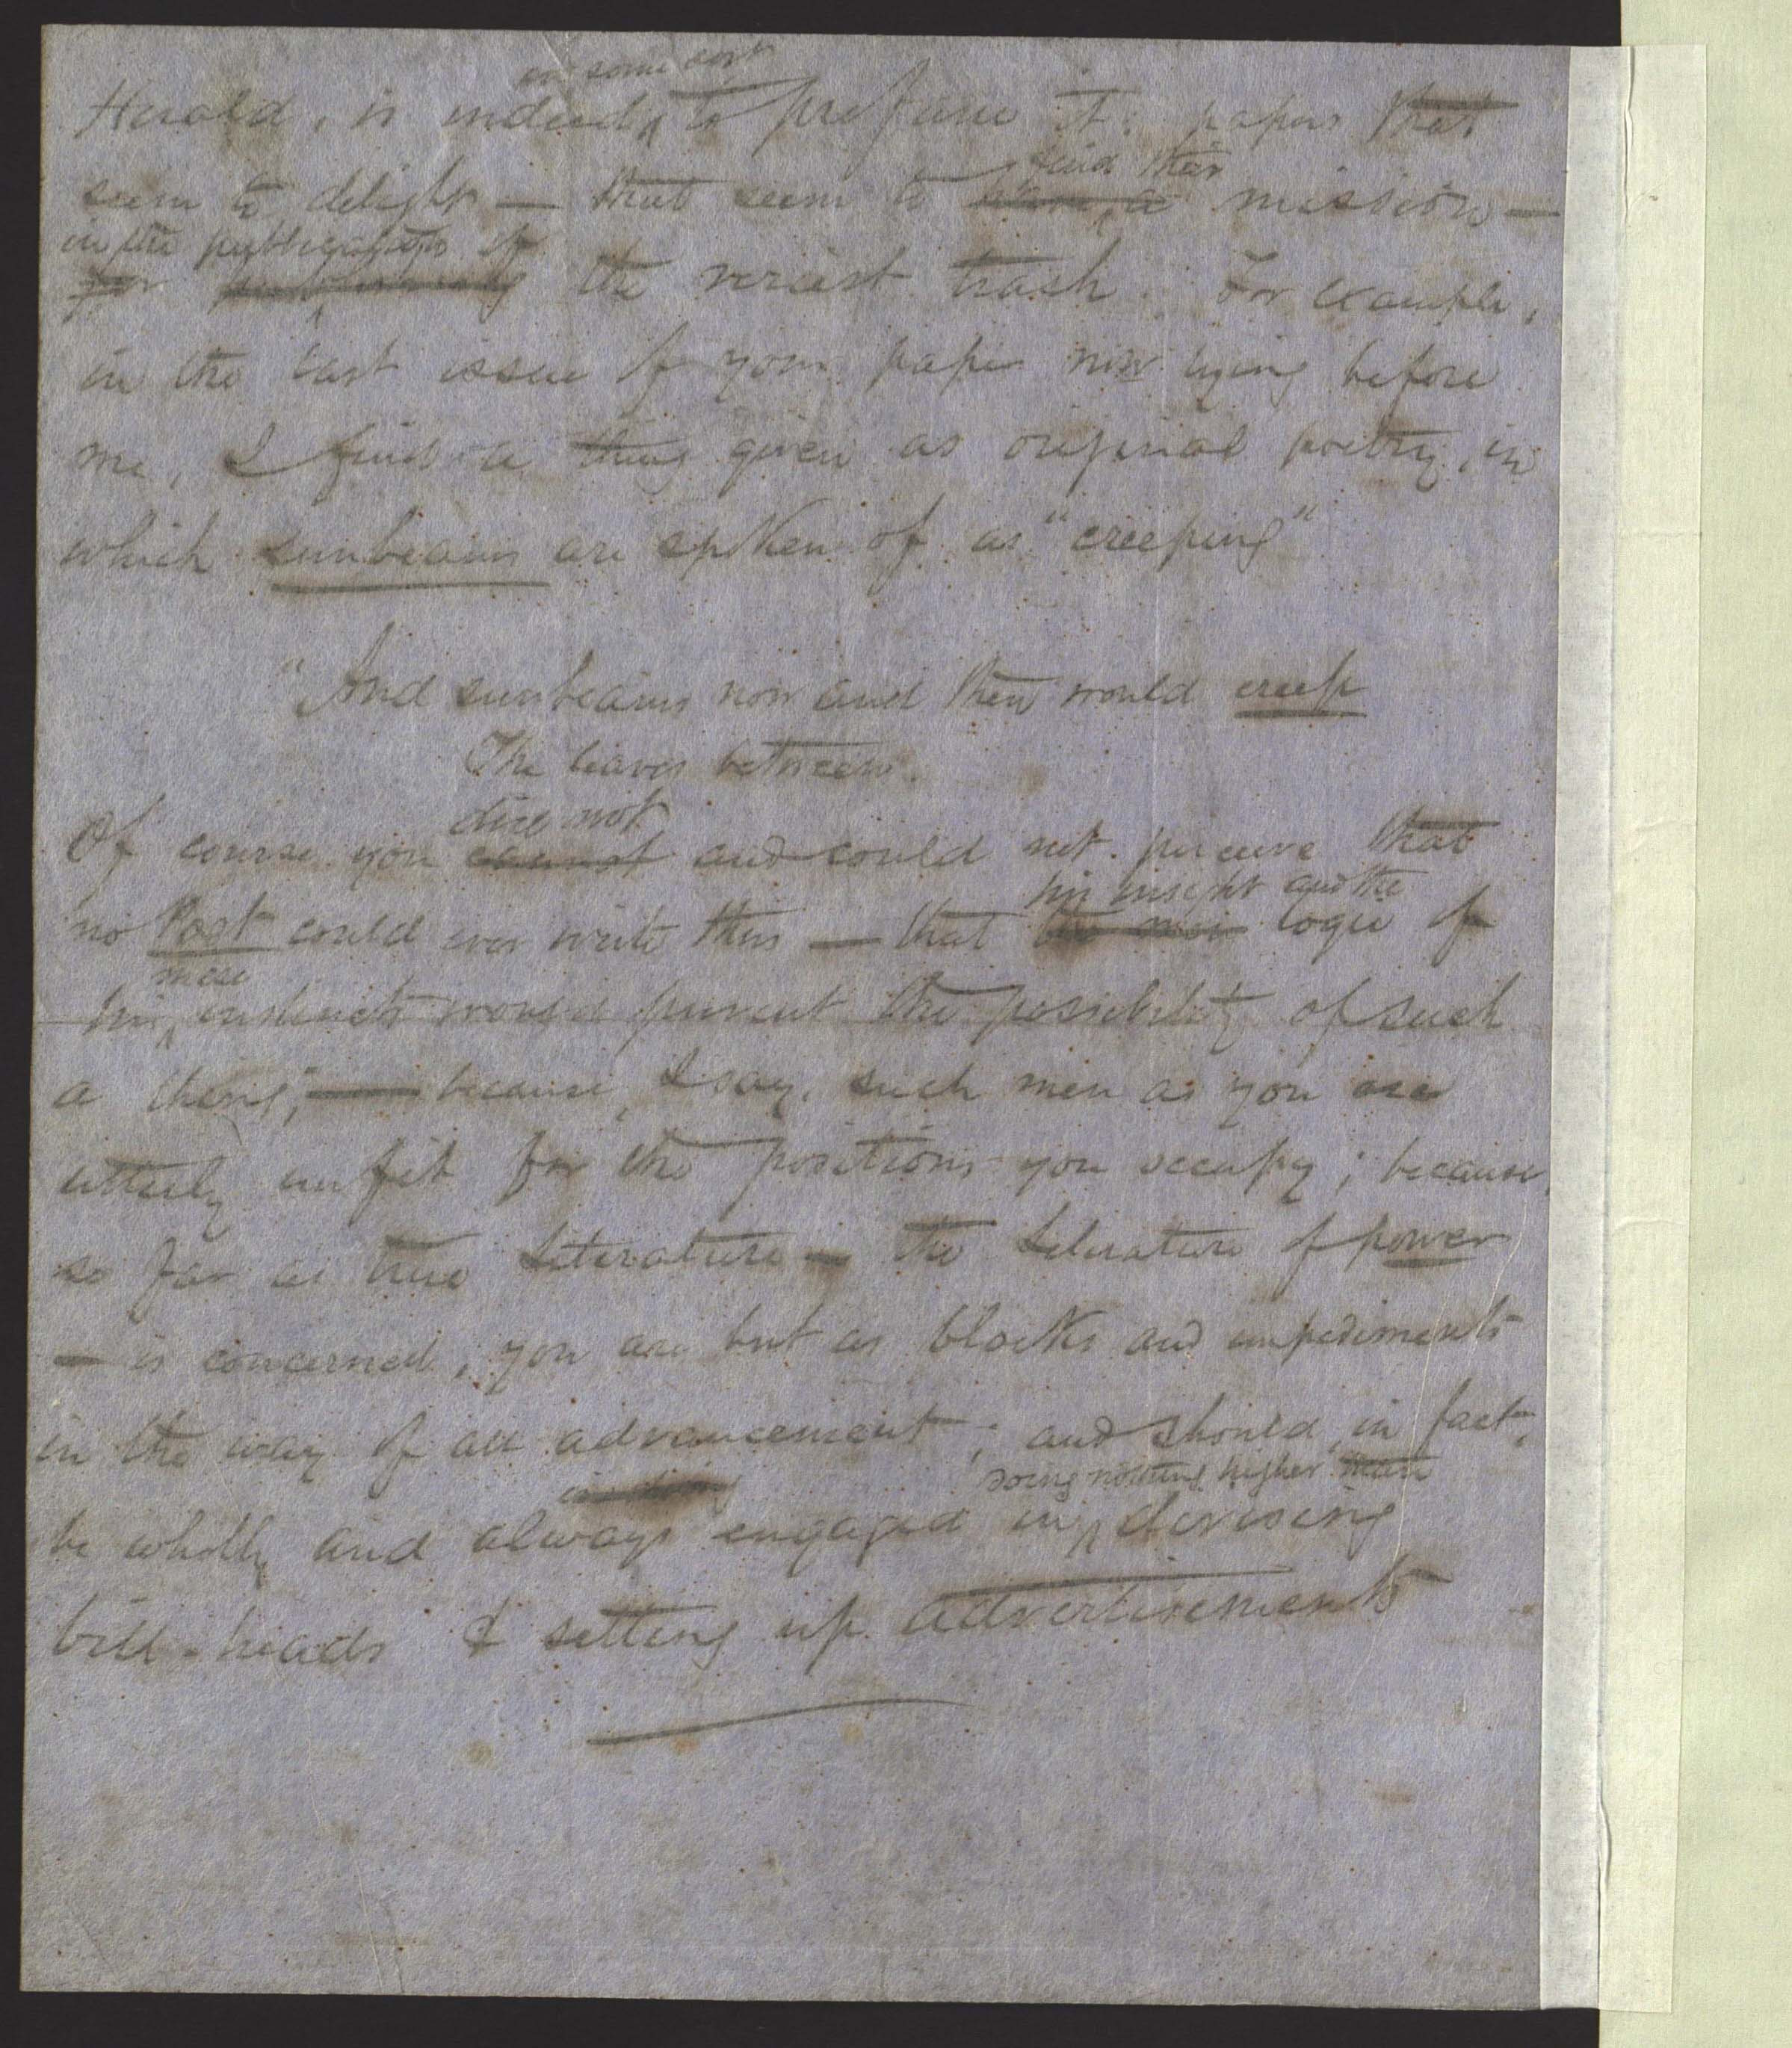 in some sort
Herald, is indeed to profane it: papers that
find their
seem to delight — that seem to a mission —
in the publication of
for the veriest trash. For example,
in the last issue of your paper now lying before
me, I find a thing given as original poetry, in
which sunbeams are spoken of as "creeping"
"And sunbeams now and then would creep
The leaves between.
did not
Of course you cannot and could not perceive that
his insight and the
no Poet could ever write thus — that logic of
mere
his instincts would prevent the possibility of such
a thing; — because, I say, such men as you are
utterly unfit for the positions you occupy; because,
so far as true Literature — the Literature of power
— is concerned, you are but as blocks and impediments
in the way of all advancement; and should, in fact,
doing nothing higher than
be wholly and always engaged in devising
bill-heads & setting up advertisements